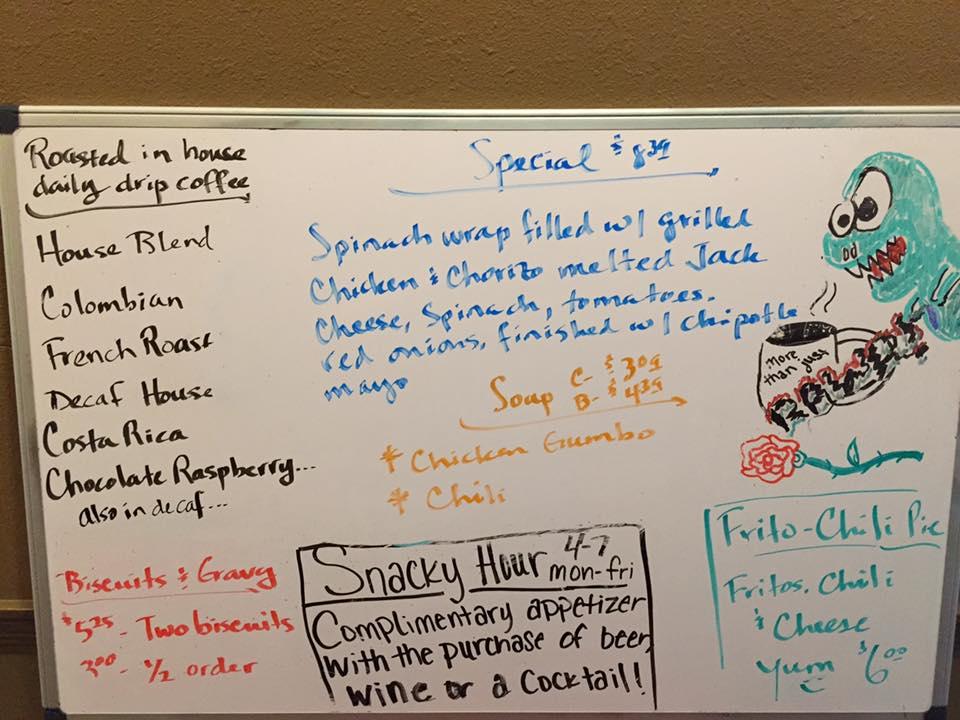 Roasted in house
daily drip coffee
House Blend
Colombian
French Roast
Decaf House
Costa Rica
Chocolate Raspberry...
also in decaf...
Special $8.39
Spinach wrap filled w/ grilled
Chicken & Chorizo melted Jack
Cheese, Spinach, tomatoes.
red onions, finished w/ chipotle
mayo
Soup C- $3.09
B- $4.39
* Chicken Gumbo
* Chili
more
than just
Biscuits & Gravy
$5.25 - Two biscuits
3.00 - 1/2 order
Snacky Hour 4-7
mon-fri
Complimentary appetizer
with the purchase of beer,
wine or a cocktail!
Frito-Chili Pie
Fritos, Chili
& Cheese
Yum $6.00